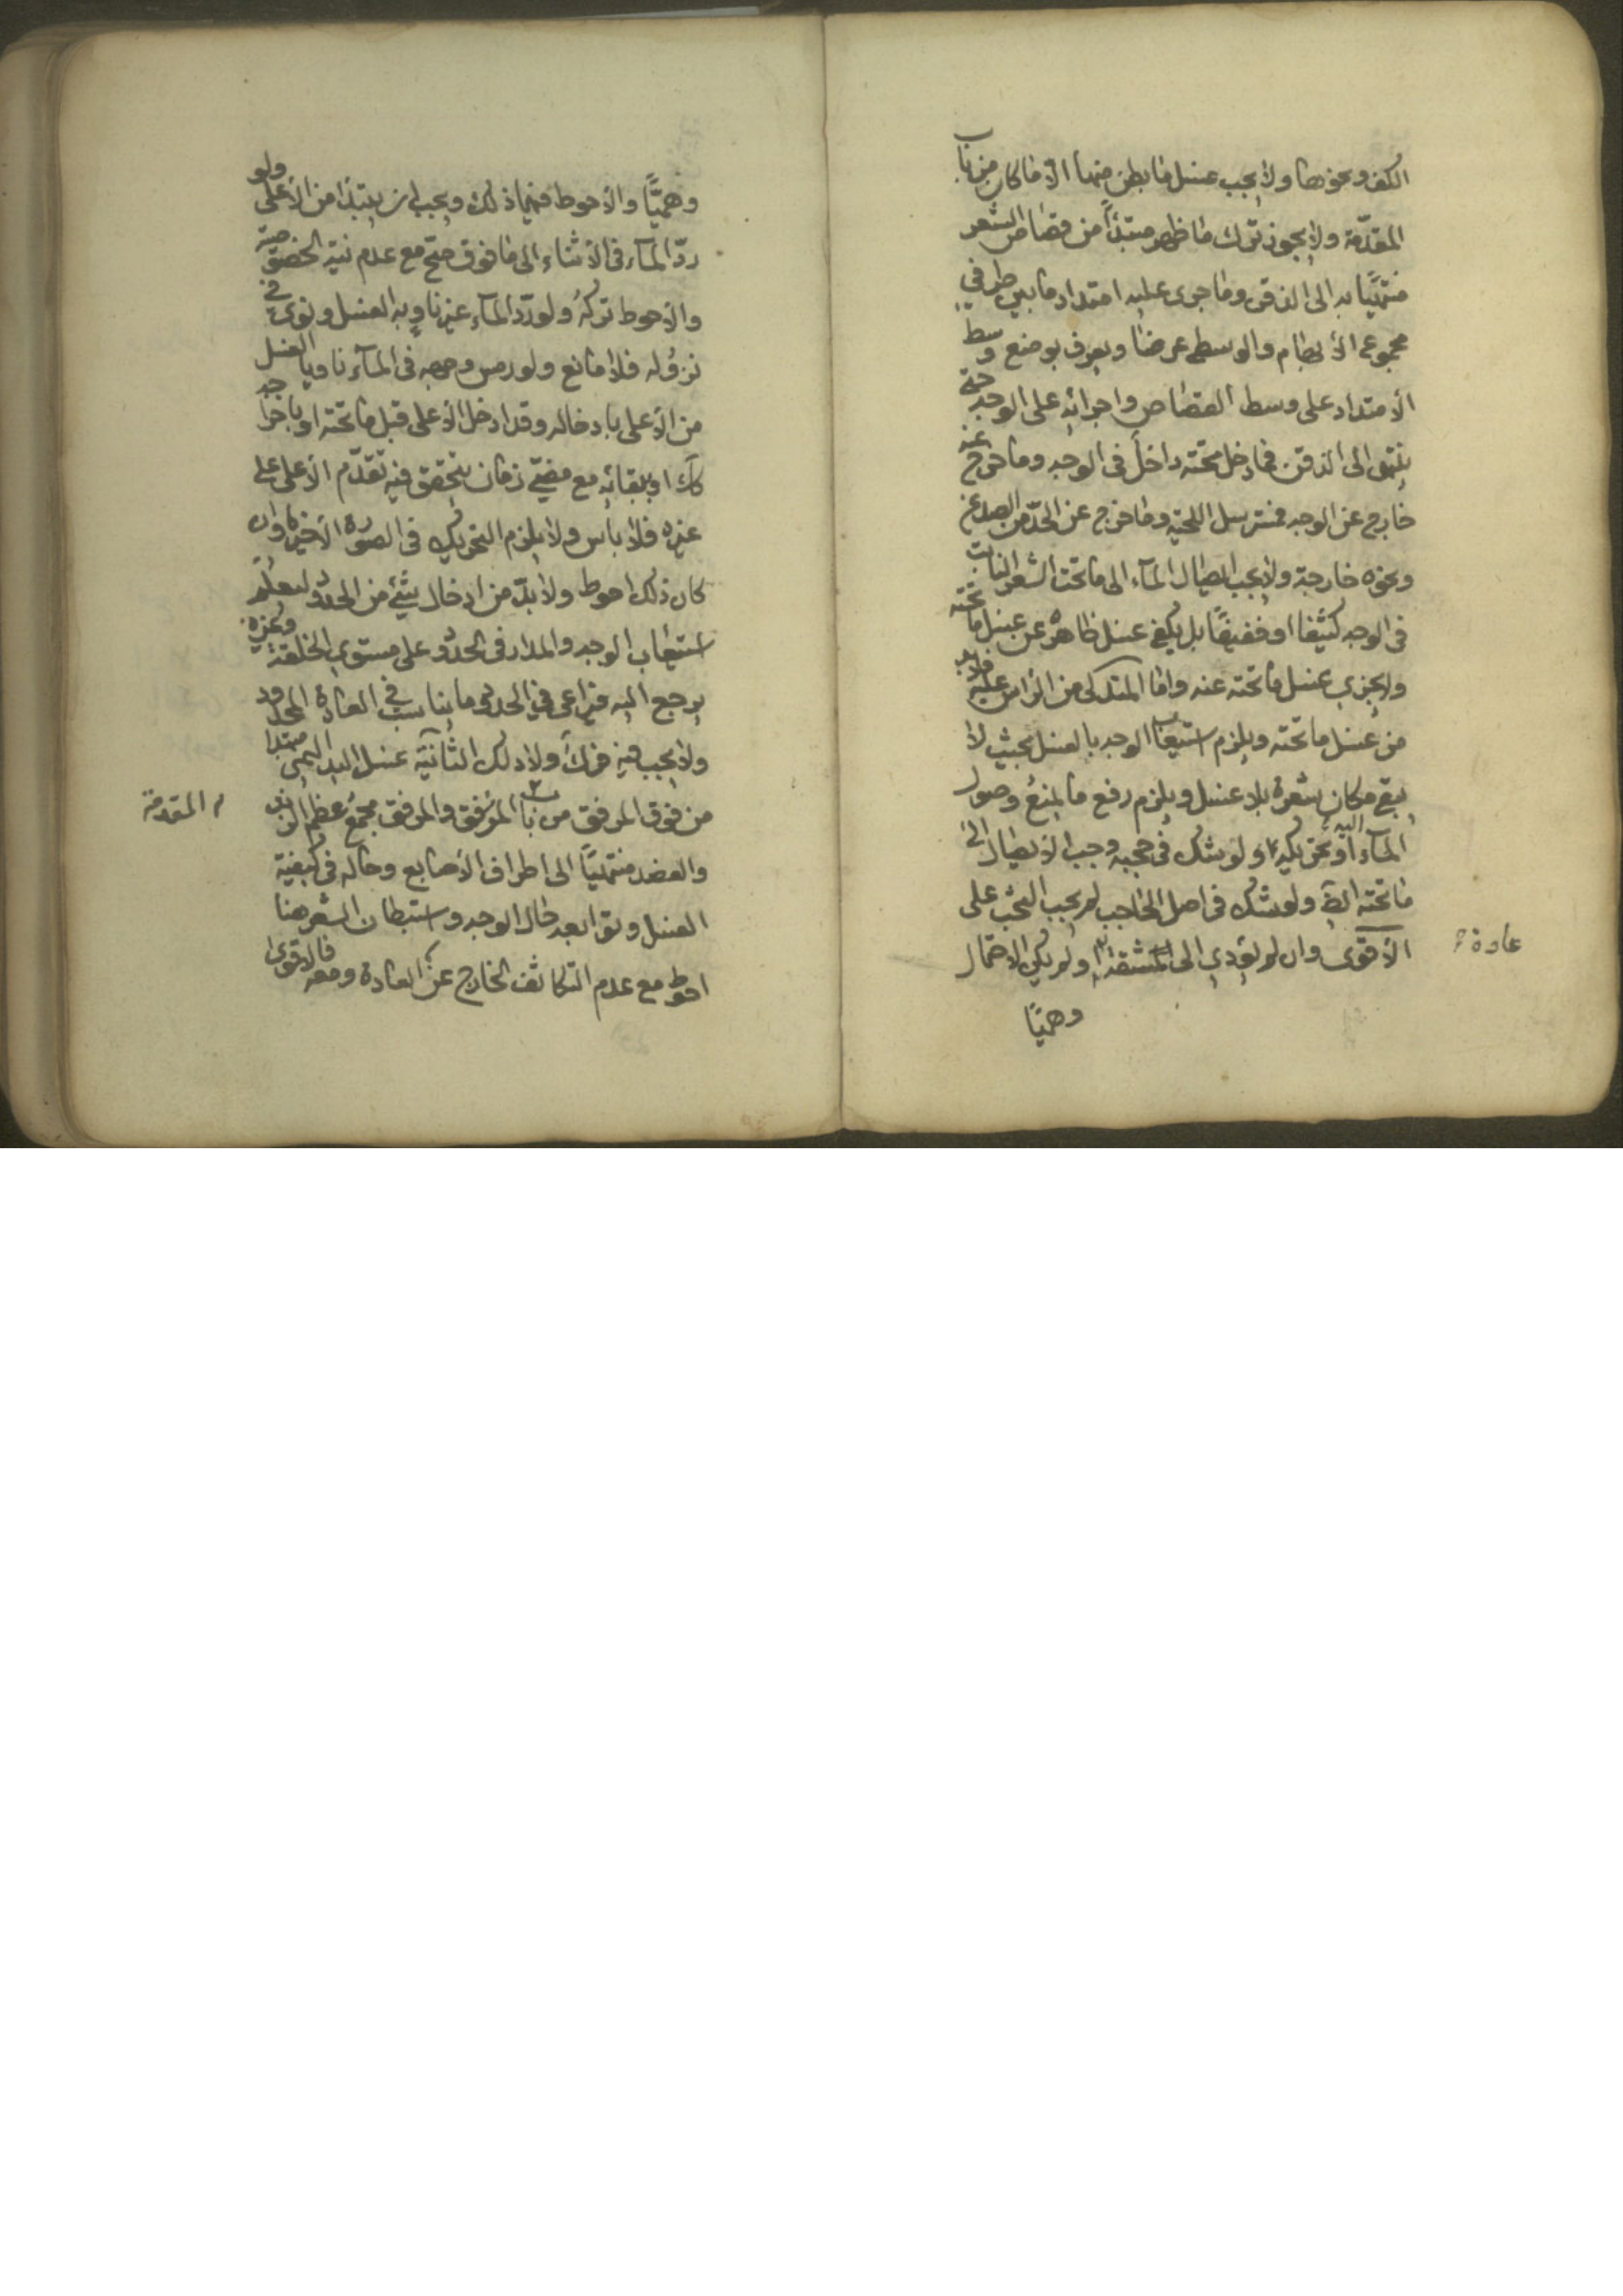 الكف ونحوها ولا يجب غسل ما بطن منها الا ما كان من باب
المقدّمة ولا يجوز ترك ما ظهر مبتدأً من قصاص الشعر
منتهيًا به الى الذقن وما جرى عليه امتداد ما بين طرفي
مجموع الأبهام والوسطى عرضا ويعرف بوضع وسط
الأمتداد على وسط القصاص واجرائه على الوجه حتى
ينتهى الى الذقن فما دخل تحته داخل فى الوجه وما خرج عنه
خارج عن الوجه فمسترسل اللحية وما خرج عن الحدّ من الصدغ
ونحوه خارجة ولا يجب ايصال المآء الى ما تحت الشعر النابت
فى الوجه كثيفا او خفيفًا بل يكفي غسل ظاهره عن غسل ما تحته
ولا يجزي غسل ما تحته عنه واما المتدلى من الراس عليه فلا بد
من غسل ما تحته ويلزم استيعاب الوجه بالغسل بحيث لا
يبقى مكان شعرة بلا غسل ويلزم رفع ما يمنع وصول
المآء اليه او تحريكه ولو شك فى حجبه وجب الايصال الى
ما تحته ايضا ولو شك فى اصل الحاجب لم يجب البحث على
الأقوى وان لم يؤدي الى المشقة ولم يكن الاحتمال
عادة
وهميًا
وهميًّا والأحوط فيما ذلك ويجب ان يبتدأ من الأعلى ولو
ردّ المآء فى الأثناء الى ما فوق صح مع عدم نية الخصوصية
والأحوط تركه ولو ردّ المآء غير ناوٍ به الغسل ونوى في
نزوله فلا مانع ولو رمس وجهه فى المآء ناويا الغسل
من الأعلى بادخاله وقد ادخل الأعلى قبل ما تحته او باخراجه
كك او ببقائه مع مضيّ زمان يتحقق فيه تقدّم الأعلى على
غيره فلا باس ولا يلزم التحريك فى الصورة الأخيرة وان
كان ذلك احوط ولا بدّ من ادخال شئ من الحدود ليعلم
استيعاب الوجه والمدار فى الحدود على مستوي الخلقة وغيره
يرجع اليه فيراعى في الحدود ما يناسب في العادة المحدود
ولا يجب فيه فرك ولا دلك الثانية غسل اليد اليمنى مبتدا
من فوق المرفق من باب المقدمة والمرفق مجمع عظم الذراع
والعضد منتهيًا الى اطراف الأصابع وحاله فى كيفية
الغسل وتوابعه حال الوجه واستبطان الشعر هنا
احوط مع عدم التكاثف الخارج عن العادة ومعه فالاقوى